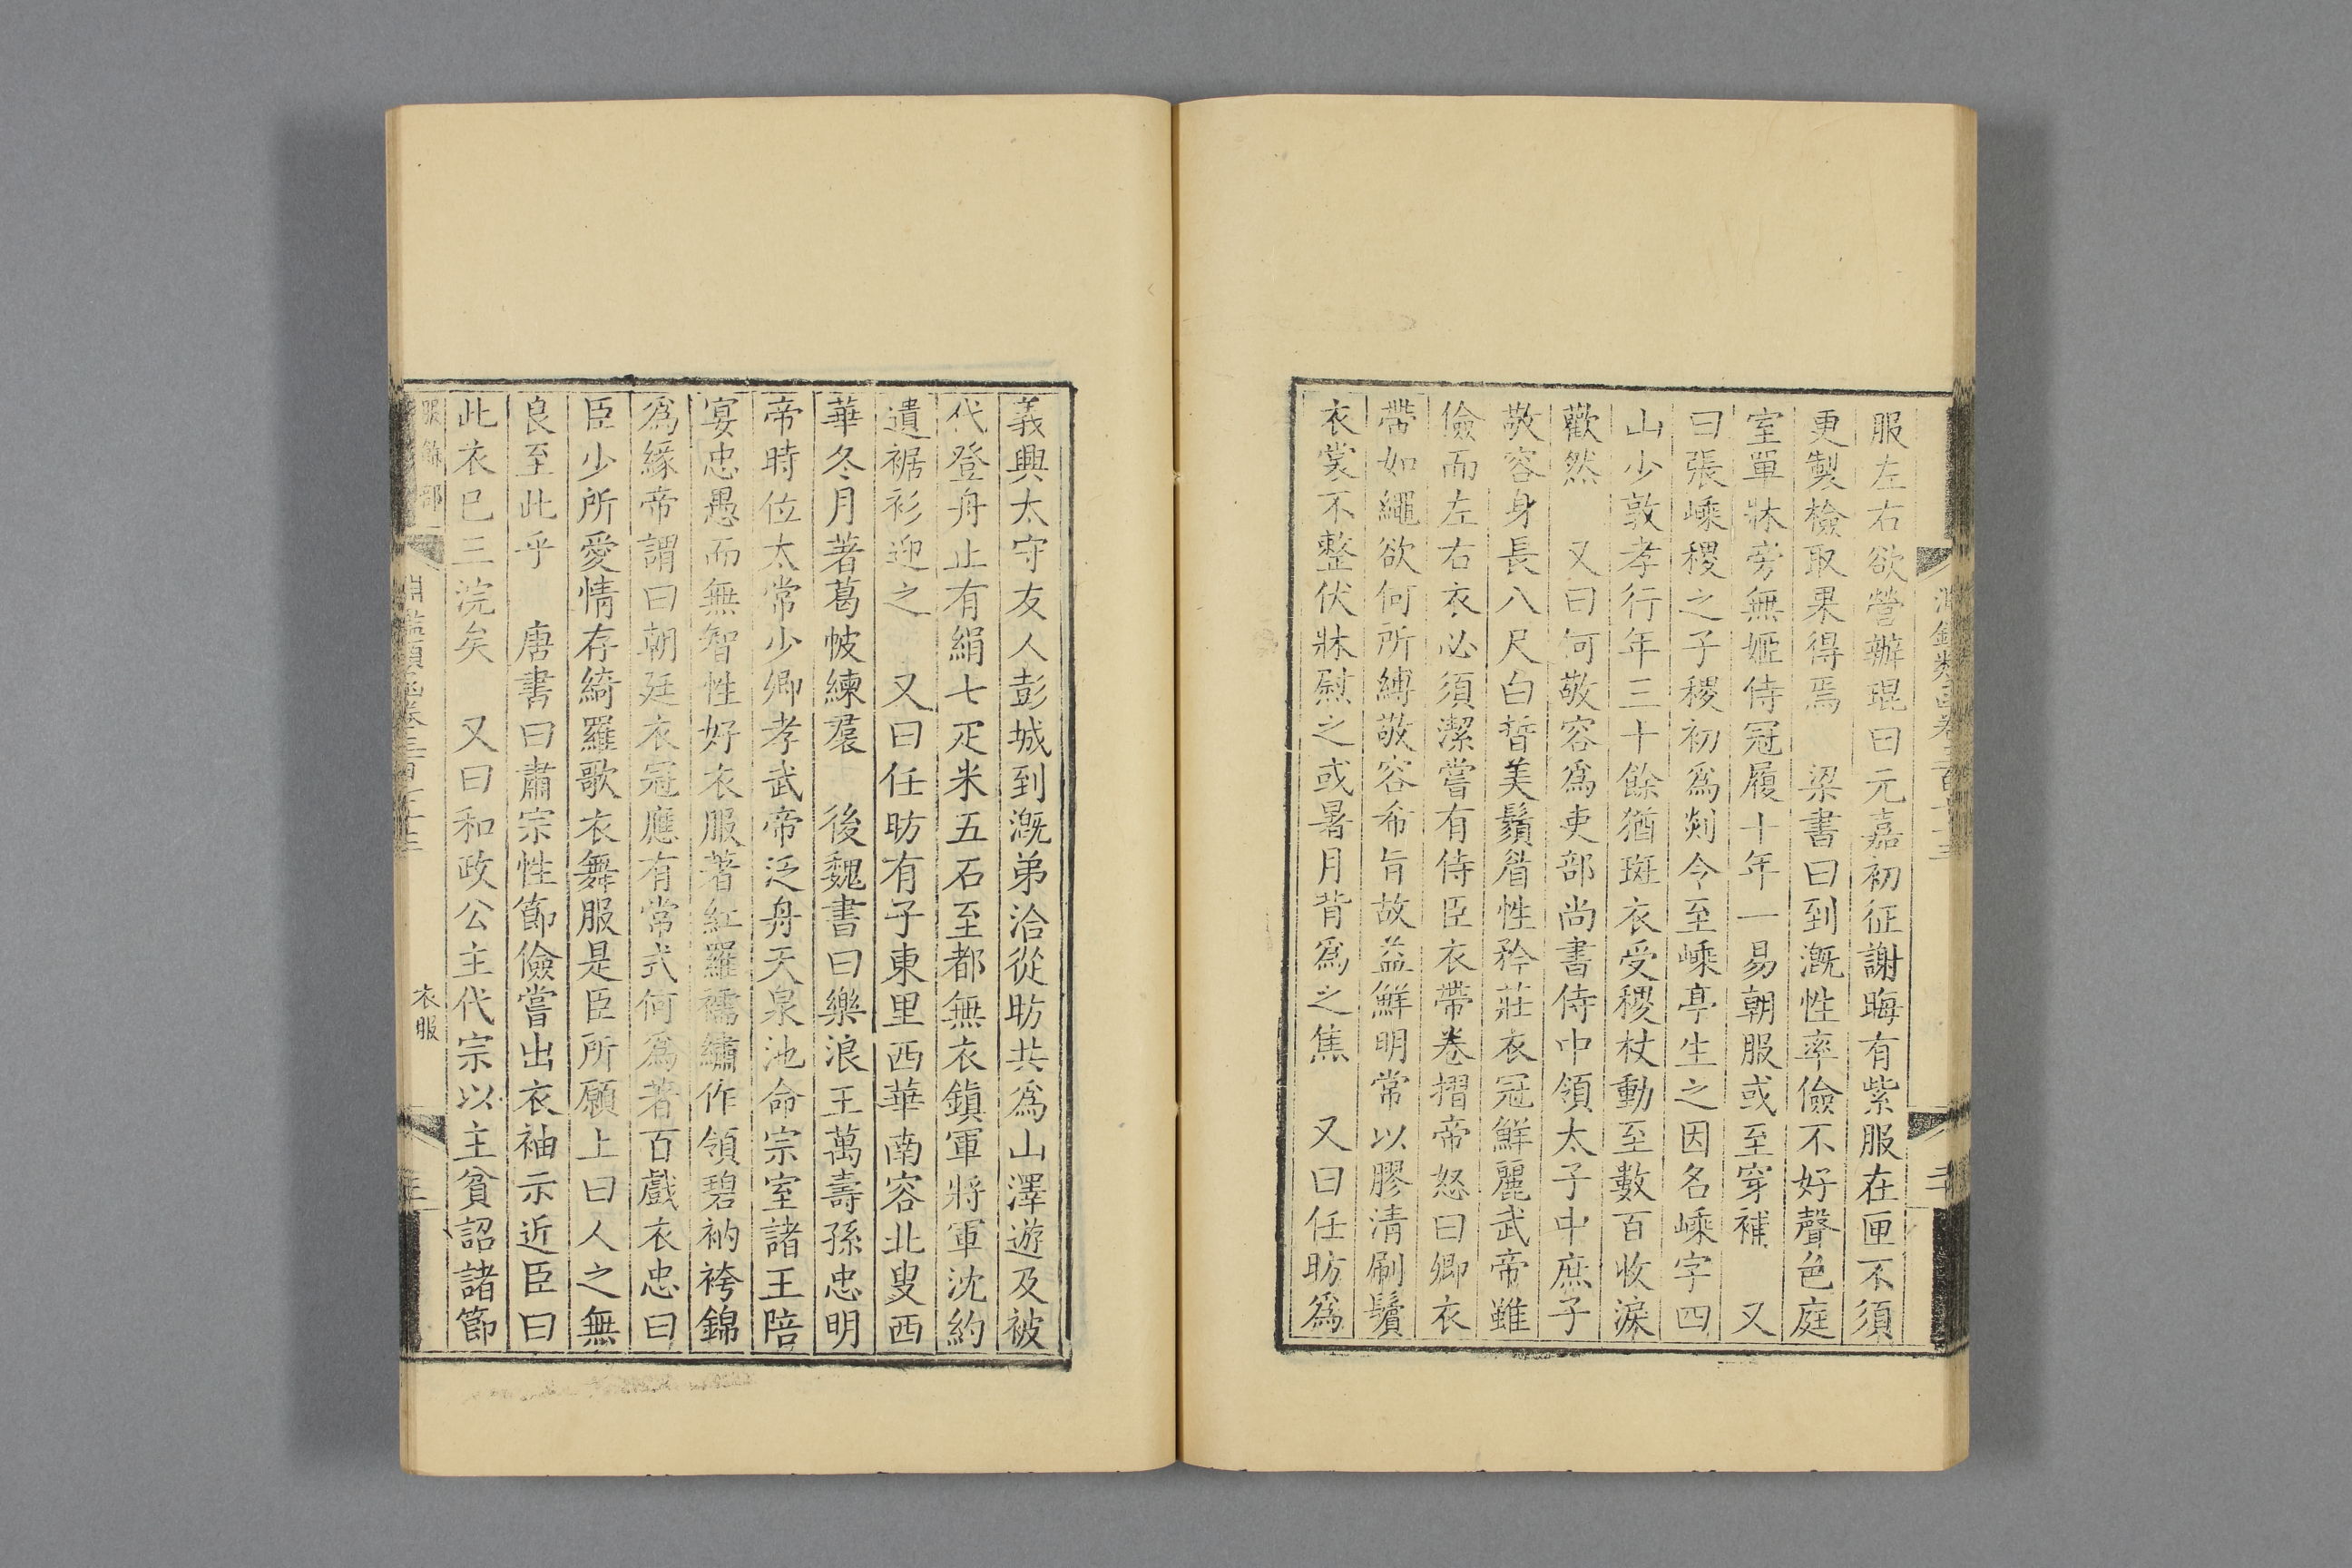 服左右欲營辦琨曰元嘉初征謝晦有紫服在匣不須
更製檢取果得焉　梁書曰到溉性率儉不好聲色庭
室單牀旁無姬侍冠履十年一易朝服或至穿補　又
曰張嵊稷之子稷初爲剡令至嵊亭生之因名嵊字四
山少敦孝行年三十餘猶斑衣受稷杖動至數百收淚
歡然　又曰何敬容爲吏部尚書侍中領太子中庶子
敬容身長八尺白晳美鬚眉性矜莊衣冠鮮麗武帝雖
儉而左右衣必須潔嘗有侍臣衣帶卷摺帝怒曰卿衣
帶如繩欲何所縛敬容希旨故益鮮明常以膠清刷鬚
衣裳不整伏牀熨之或暑月背爲之焦　又曰任昉爲
義興太守友人彭城到溉弟洽從昉共爲山澤遊及被
代登舟止有絹七疋米五石至都無衣鎮軍將軍沈約
遺裾衫迎之　又曰任昉有子東里西華南容北叟西
華冬月著葛帔練裠　後魏書曰樂浪王萬壽孫忠明
帝時位太常少卿孝武帝泛舟天泉池命宗室諸王陪
宴忠愚而無智性好衣服著紅羅襦繡作領碧衲袴錦
爲緣帝謂曰朝廷衣冠應有常式何爲著百戲衣忠曰
臣少所愛情存綺羅歌衣舞服是臣所願上曰人之無
良至此乎　唐書曰肅宗性節儉嘗出衣袖示近臣曰
此衣已三浣矣　又曰和政公主代宗以主貧詔諸節
服飾部　淵鑑類函卷三百七十三　衣服　三